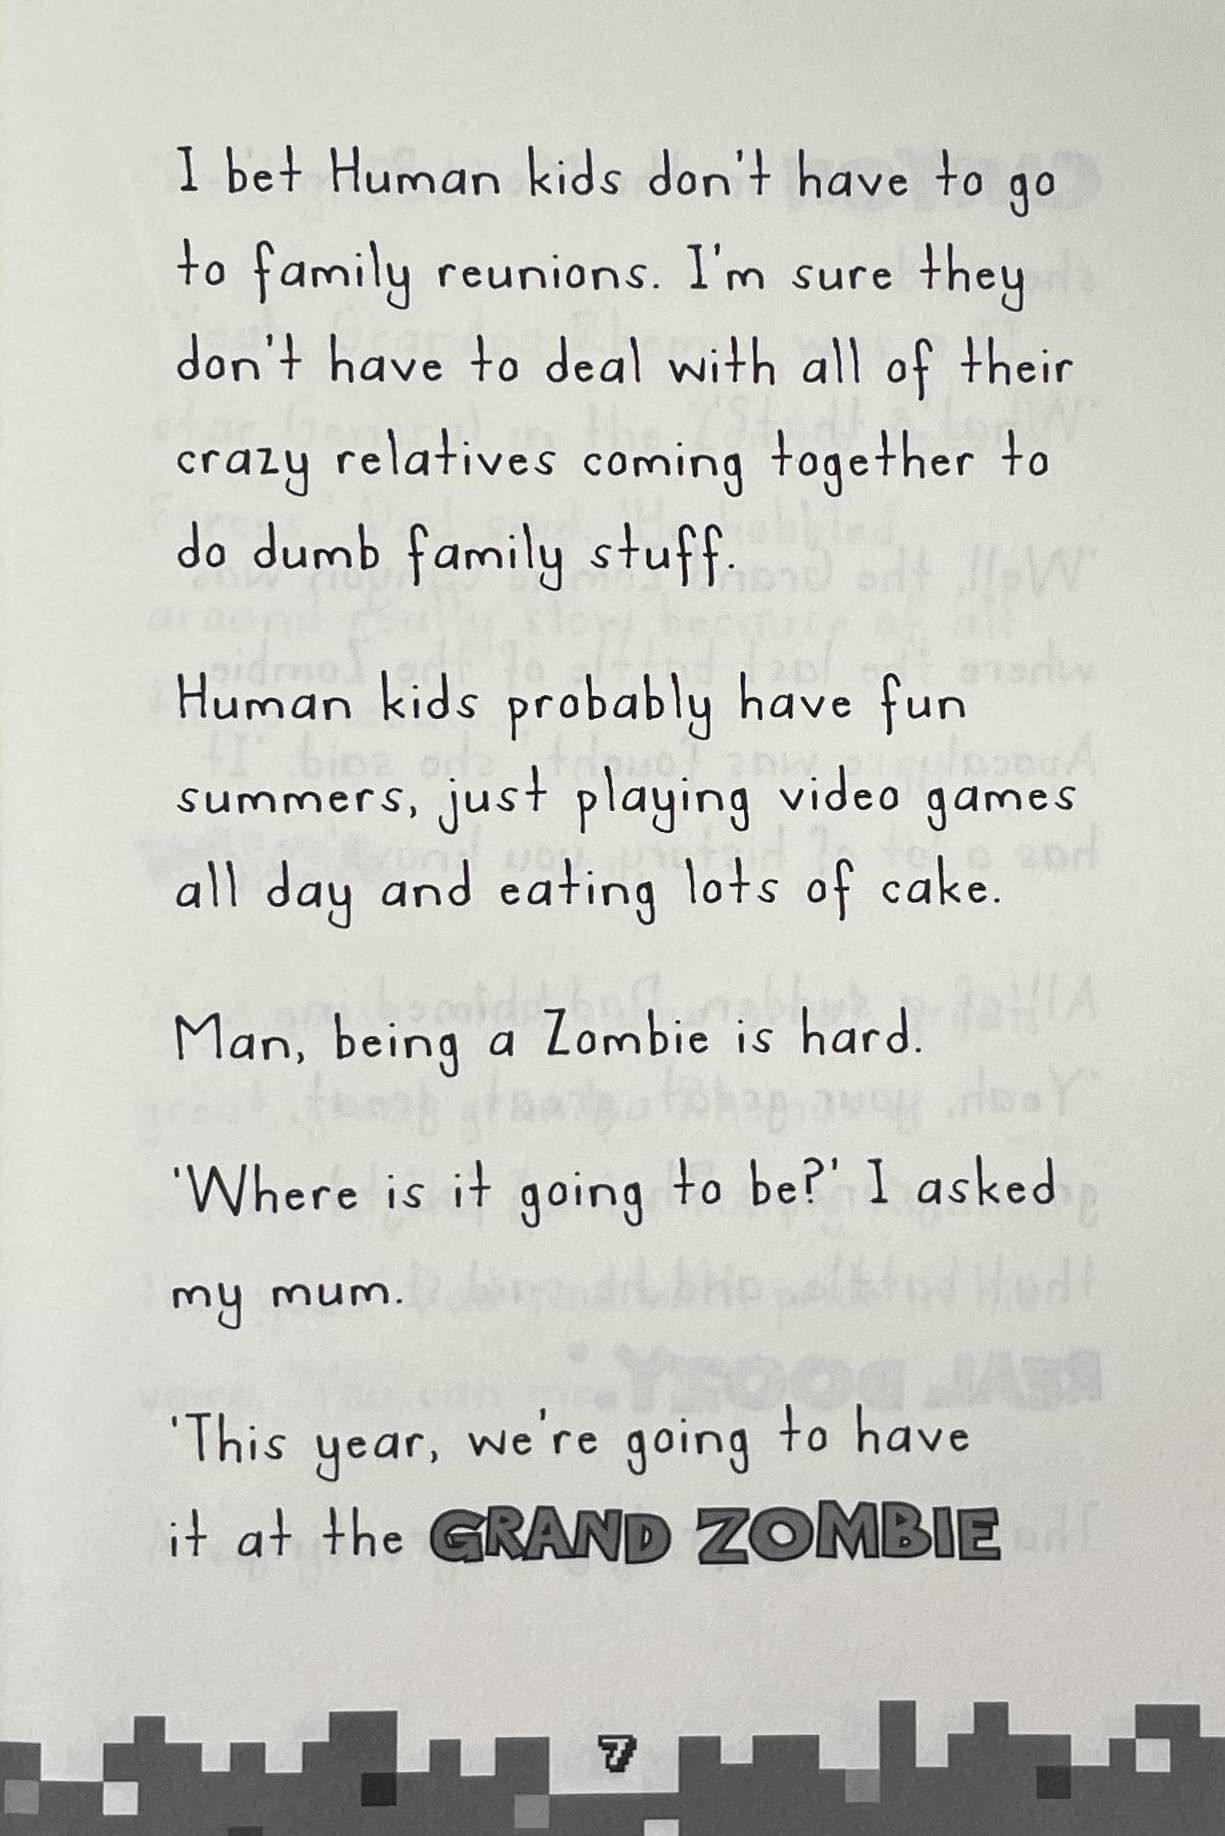 I bet Human kids don't have to go
to family reunions. I'm sure they
don't have to deal with all of their
crazy relatives coming together to
do dumb family stuff.
Human kids probably have fun
summers, just playing video games
all day and eating lots of cake.
Man, being a Zombie is hard.
'Where is it going to be?' I asked
my mum.
'This year, we're going to have
it at the GRAND ZOMBIE
7